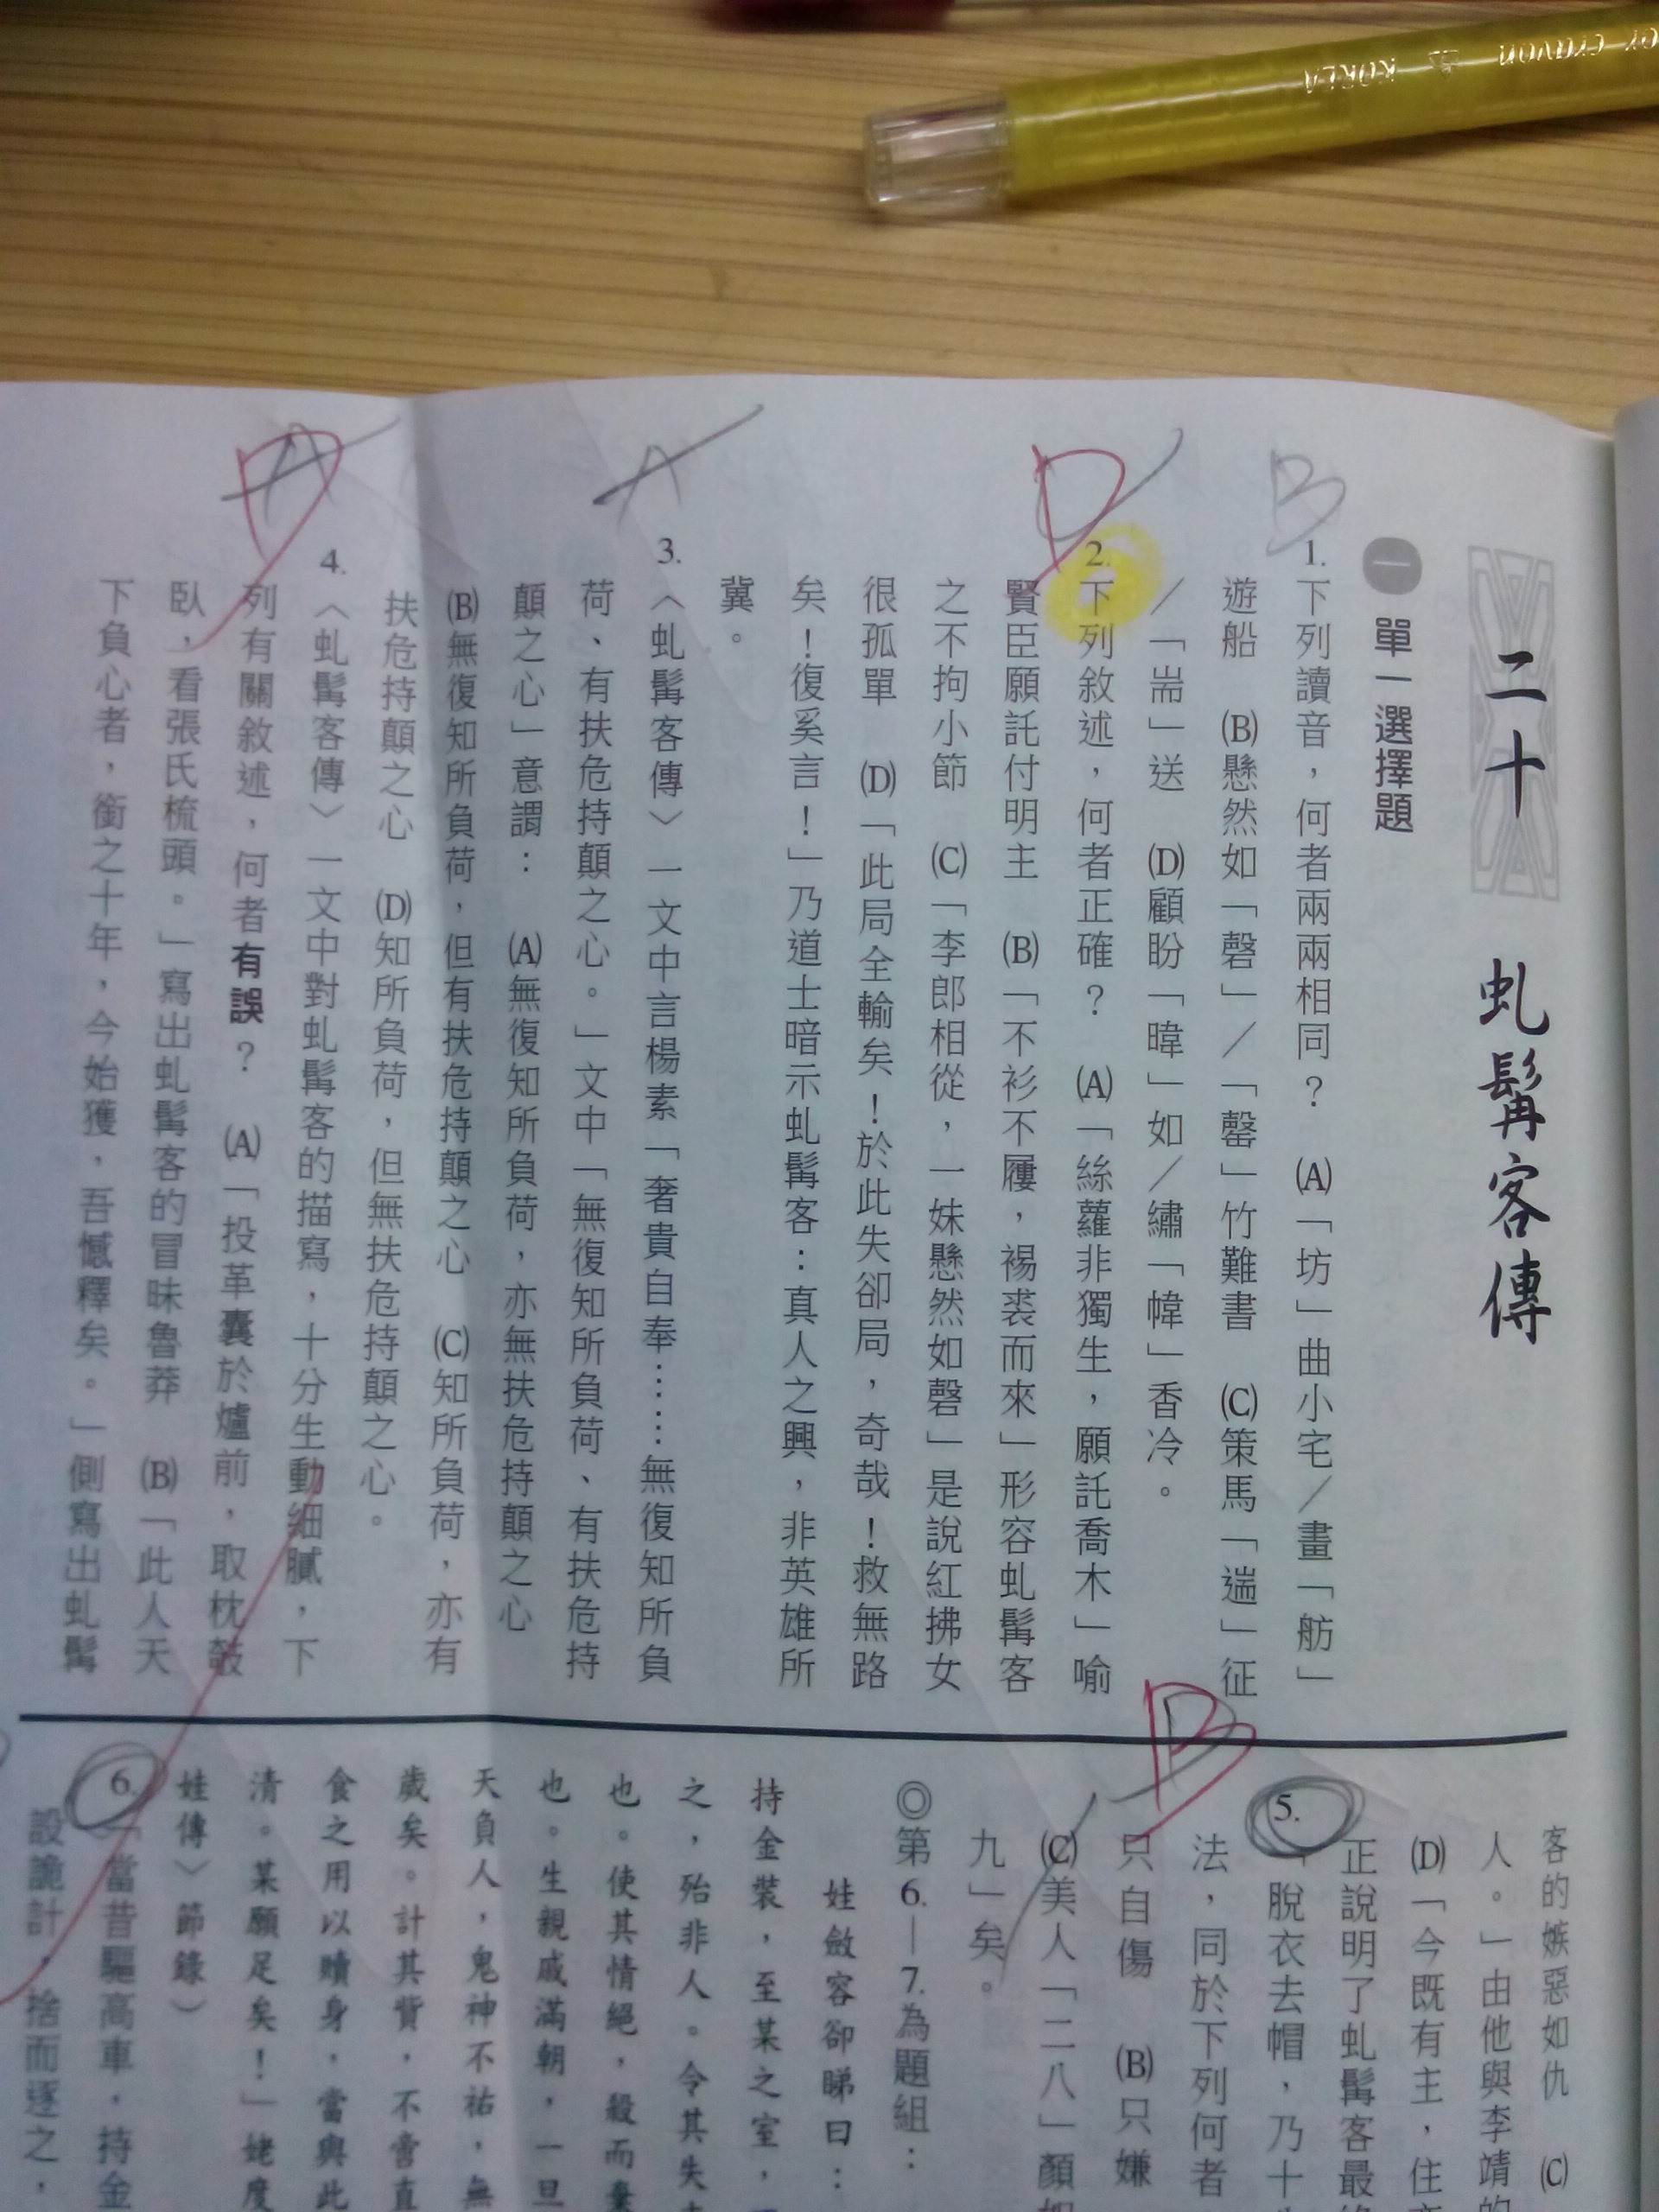 or crayon KOREA
二十 虬髯客傳
一 單一選擇題
B
1. 下列讀音，何者兩兩相同？ (A)「坊」曲小宅／畫「舫」
遊船 (B)懸然如「磬」／「罄」竹難書 (C)策馬「遄」征
／「耑」送 (D)顧盼「暐」如／繡「幃」香冷。
D
2. 下列敘述，何者正確？ (A)「絲蘿非獨生，願託喬木」喻
賢臣願託付明主 (B)「不衫不屨，裼裘而來」形容虬髯客
之不拘小節 (C)「李郎相從，一妹懸然如磬」是說紅拂女
很孤單 (D)「此局全輸矣！於此失卻局，奇哉！救無路
矣！復奚言！」乃道士暗示虬髯客：真人之興，非英雄所
冀。
A
3. 〈虬髯客傳〉一文中言楊素「奢貴自奉……無復知所負
荷、有扶危持顛之心。」文中「無復知所負荷、有扶危持
顛之心」意謂： (A)無復知所負荷，亦無扶危持顛之心
(B)無復知所負荷，但有扶危持顛之心 (C)知所負荷，亦有
扶危持顛之心 (D)知所負荷，但無扶危持顛之心。
D
4. 〈虬髯客傳〉一文中對虬髯客的描寫，十分生動細膩，下
列有關敘述，何者有誤？ (A)「投革囊於爐前，取枕敧
臥，看張氏梳頭。」寫出虬髯客的冒昧魯莽 (B)「此人天
下負心者，銜之十年，今始獲，吾憾釋矣。」側寫出虬髯
客的嫉惡如仇 (C)
人。」由他與李靖的
(D)「今既有主，住
正說明了虬髯客最
B
5. 「脫衣去帽，乃十
法，同於下列何者
只自傷 (B)只嫌
(C)美人「二八」顏如
九」矣。
◎第6.—7.為題組：
娃斂容卻睇曰：
持金裝，至某之室，
之，殆非人。令其失
也。使其情絕，殺而棄
也。生親戚滿朝，一旦
天負人，鬼神不祐，無
歲矣。計其貲，不啻直
食之用以贖身，當與此
清。某願足矣！」姥度
娃傳〉節錄）
6. 「當昔驅高車，持金
設詭計，捨而逐之，